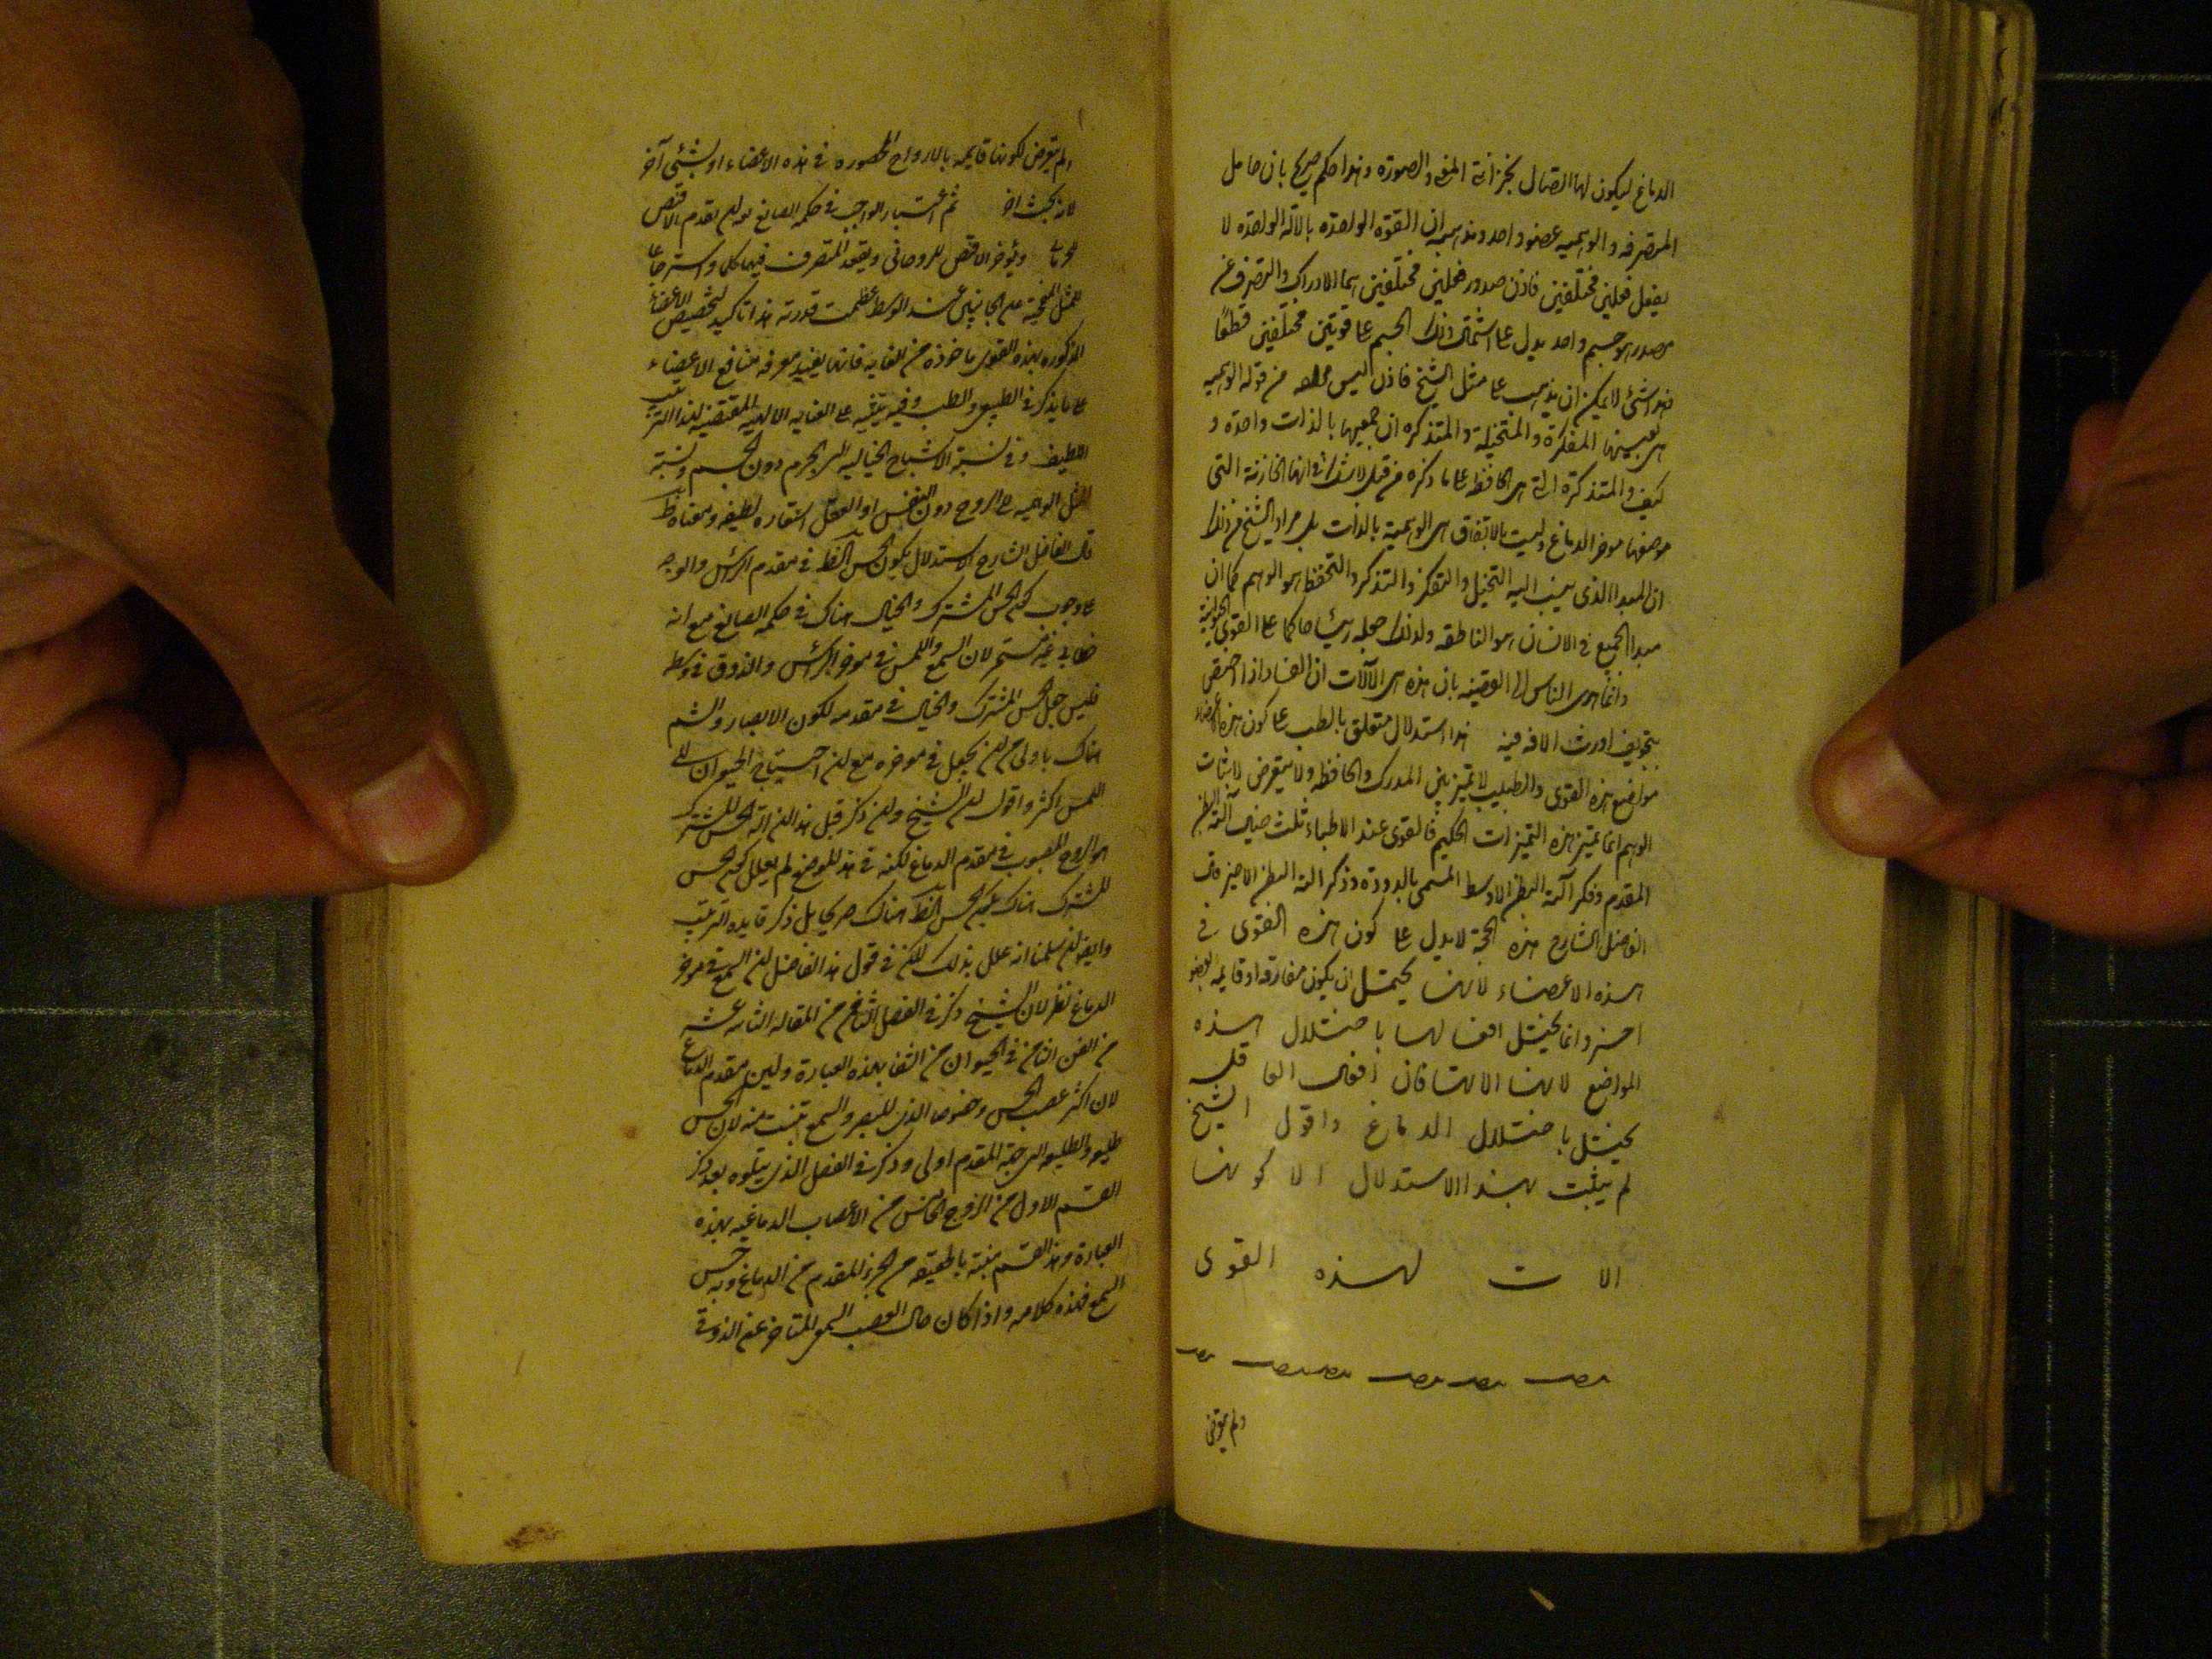 الدماغ ليكون لها اتصال بخزانتى المعنى والصورة وهذا حكم صريح بان حامل
المتصرفه والوهميه عضو واحد ومذهبه ان القوة الواحدة بالآلة الواحدة لا
يفعل فعلين مختلفين فاذن صدور فعلين مختلفين هما الادراك والتصرف عن
مصدر هو جسم واحد يدل على اشتمال ذلك الجسم على قوتين مختلفتين قطعا
فهذا شئ لا يمكن ان يذهب على مثل الشيخ فاذن ليس من قوله الوهميه
هى بعينها المفكرة والمتخيلة والمتذكره ان جميعها بالذات واحدة و
كيف والمتذكرة التى هى الحافظه على ما ذكره من قبل لا شك فى انها الخازنة التى
موضعها موخر الدماغ وليست بالاتفاق هى الوهمية بالذات بل مراد الشيخ من ذلك
ان المبدا الذى ينسب اليه التخيل والتفكر والتذكر والتحفظ هو الوهم كما ان
مبدا الجميع فى الانسان هو الناطقه ولذلك جعله رئيسا حاكما على القوى الحيوانية
وانما هدى الناس الى القضيه بان هذه هى الآلات ان الفساد اذا اختص
بتجويف اورث الافه فيه هذا استدلال متعلق بالطب على كون هذه الاعضاء
مواضع هذه القوى والطبيب لا يميز بين المدرك والحافظه ولا يتعرض لاثبات
الوهم انما يتميز هذه التميزات الحكيم فالقوى عند الاطباء ثلث خيال آلته البطن
المقدم وفكر آلته البطن الاوسط المسمى بالدودة وذكر الته البطن الاخير قال
الفاضل الشارح هذه الحجة لا يدل على كون هذه القوى فى
هذه الاعضاء لانها يحتمل ان يكون مفارقه او قايمه بعضو
اخر وانما يختل افعالها باختلال هذه
المواضع لانها الاتها فان افعال العاقله
يختل باختلال الدماغ واقول الشيخ
لم يثبت بهذا الاستدلال الا كونها
الات لهذه القوى
ولم يتعرض
لم يتعرض لكونها قايمه بالارواح المحصوره فى هذه الاعضاء او بشئى آخر
لانه بحث اخر ثم اعتبار الواجب فى حكمه الصانع تعالى ان يقدم الاقنص
للجرمانى ويؤخر الاقنص للروحانى ويقعد المتصرف فيهما حكما واسترجاعا
للمثل المنمحية عن الجانبين عند الوسط عظمت قدرته هذا تاكيد لتخصيص الاعضاء
المذكوره بهذه القوى ماخوذه من الغايه فانها يفيد معرفه منافع الاعضاء
على ما يذكر فى الطبيعى والطب وفيه تنبيه على العنايه الالهيه المقتضيه لهذا الترتيب
اللطيف وفى نسبة الاشباح الخياليه الى الجرم دون الجسم ونسبة
المثل الوهميه الى الروح دون النفس او العقل استعاره لطيفه ومعناه ظ
قال الفاضل الشارح الاستدلال بكون الحس الظ فى مقدم الراس والوجه
على وجوب كون الحس المشترك والخيال هناك فى حكمه الصانع مع انه
خطابى غير مستمر لان السمع واللمس فى موخر الراس والذوق فى وسطه
فليس جعل الحس المشترك والخيال فى مقدمه لكون الابصار والشم
هناك باولى من ان يجعل فى موخره مع ان احتياج الحيوان الى
اللمس اكثر واقول ان الشيخ وان ذكر قبل هذا ان آلة الحس المشترك
هو الروح المصبوب فى مقدم الدماغ لكنه فى هذا الموضع لم يعلل كون الحس
المشترك هناك بكون الحس الظ هناك صريحا بل ذكر فايده الترتيب
وايضا ان سلمنا انه علل بذلك لكن فى قول هذا الفاضل ان السمع فى موخر
الدماغ نظر لان الشيخ ذكر فى الفصل الثانى من المقاله الثانيه عشر
من الفن الثامن فى الحيوان من الشفا بهذه العبارة ولين مقدم الدماغ
لان اكثر عصب الحس وخصوصا الذى للبصر والسمع تنبت منه لان الحس
طليعه والطليعه الى جهة المقدم اولى وذكر فى الفصل الذى يتلوه بعد ذكر
القسم الاول من الزوج الخامس من الاعصاب الدماغيه بهذه
العبارة وهذا القسم منبته بالحقيقه من الجزء المقدم من الدماغ وبه حس
السمع فهذه كلامه واذا كان حال العصب السمعى المتاخر عن الذوقى